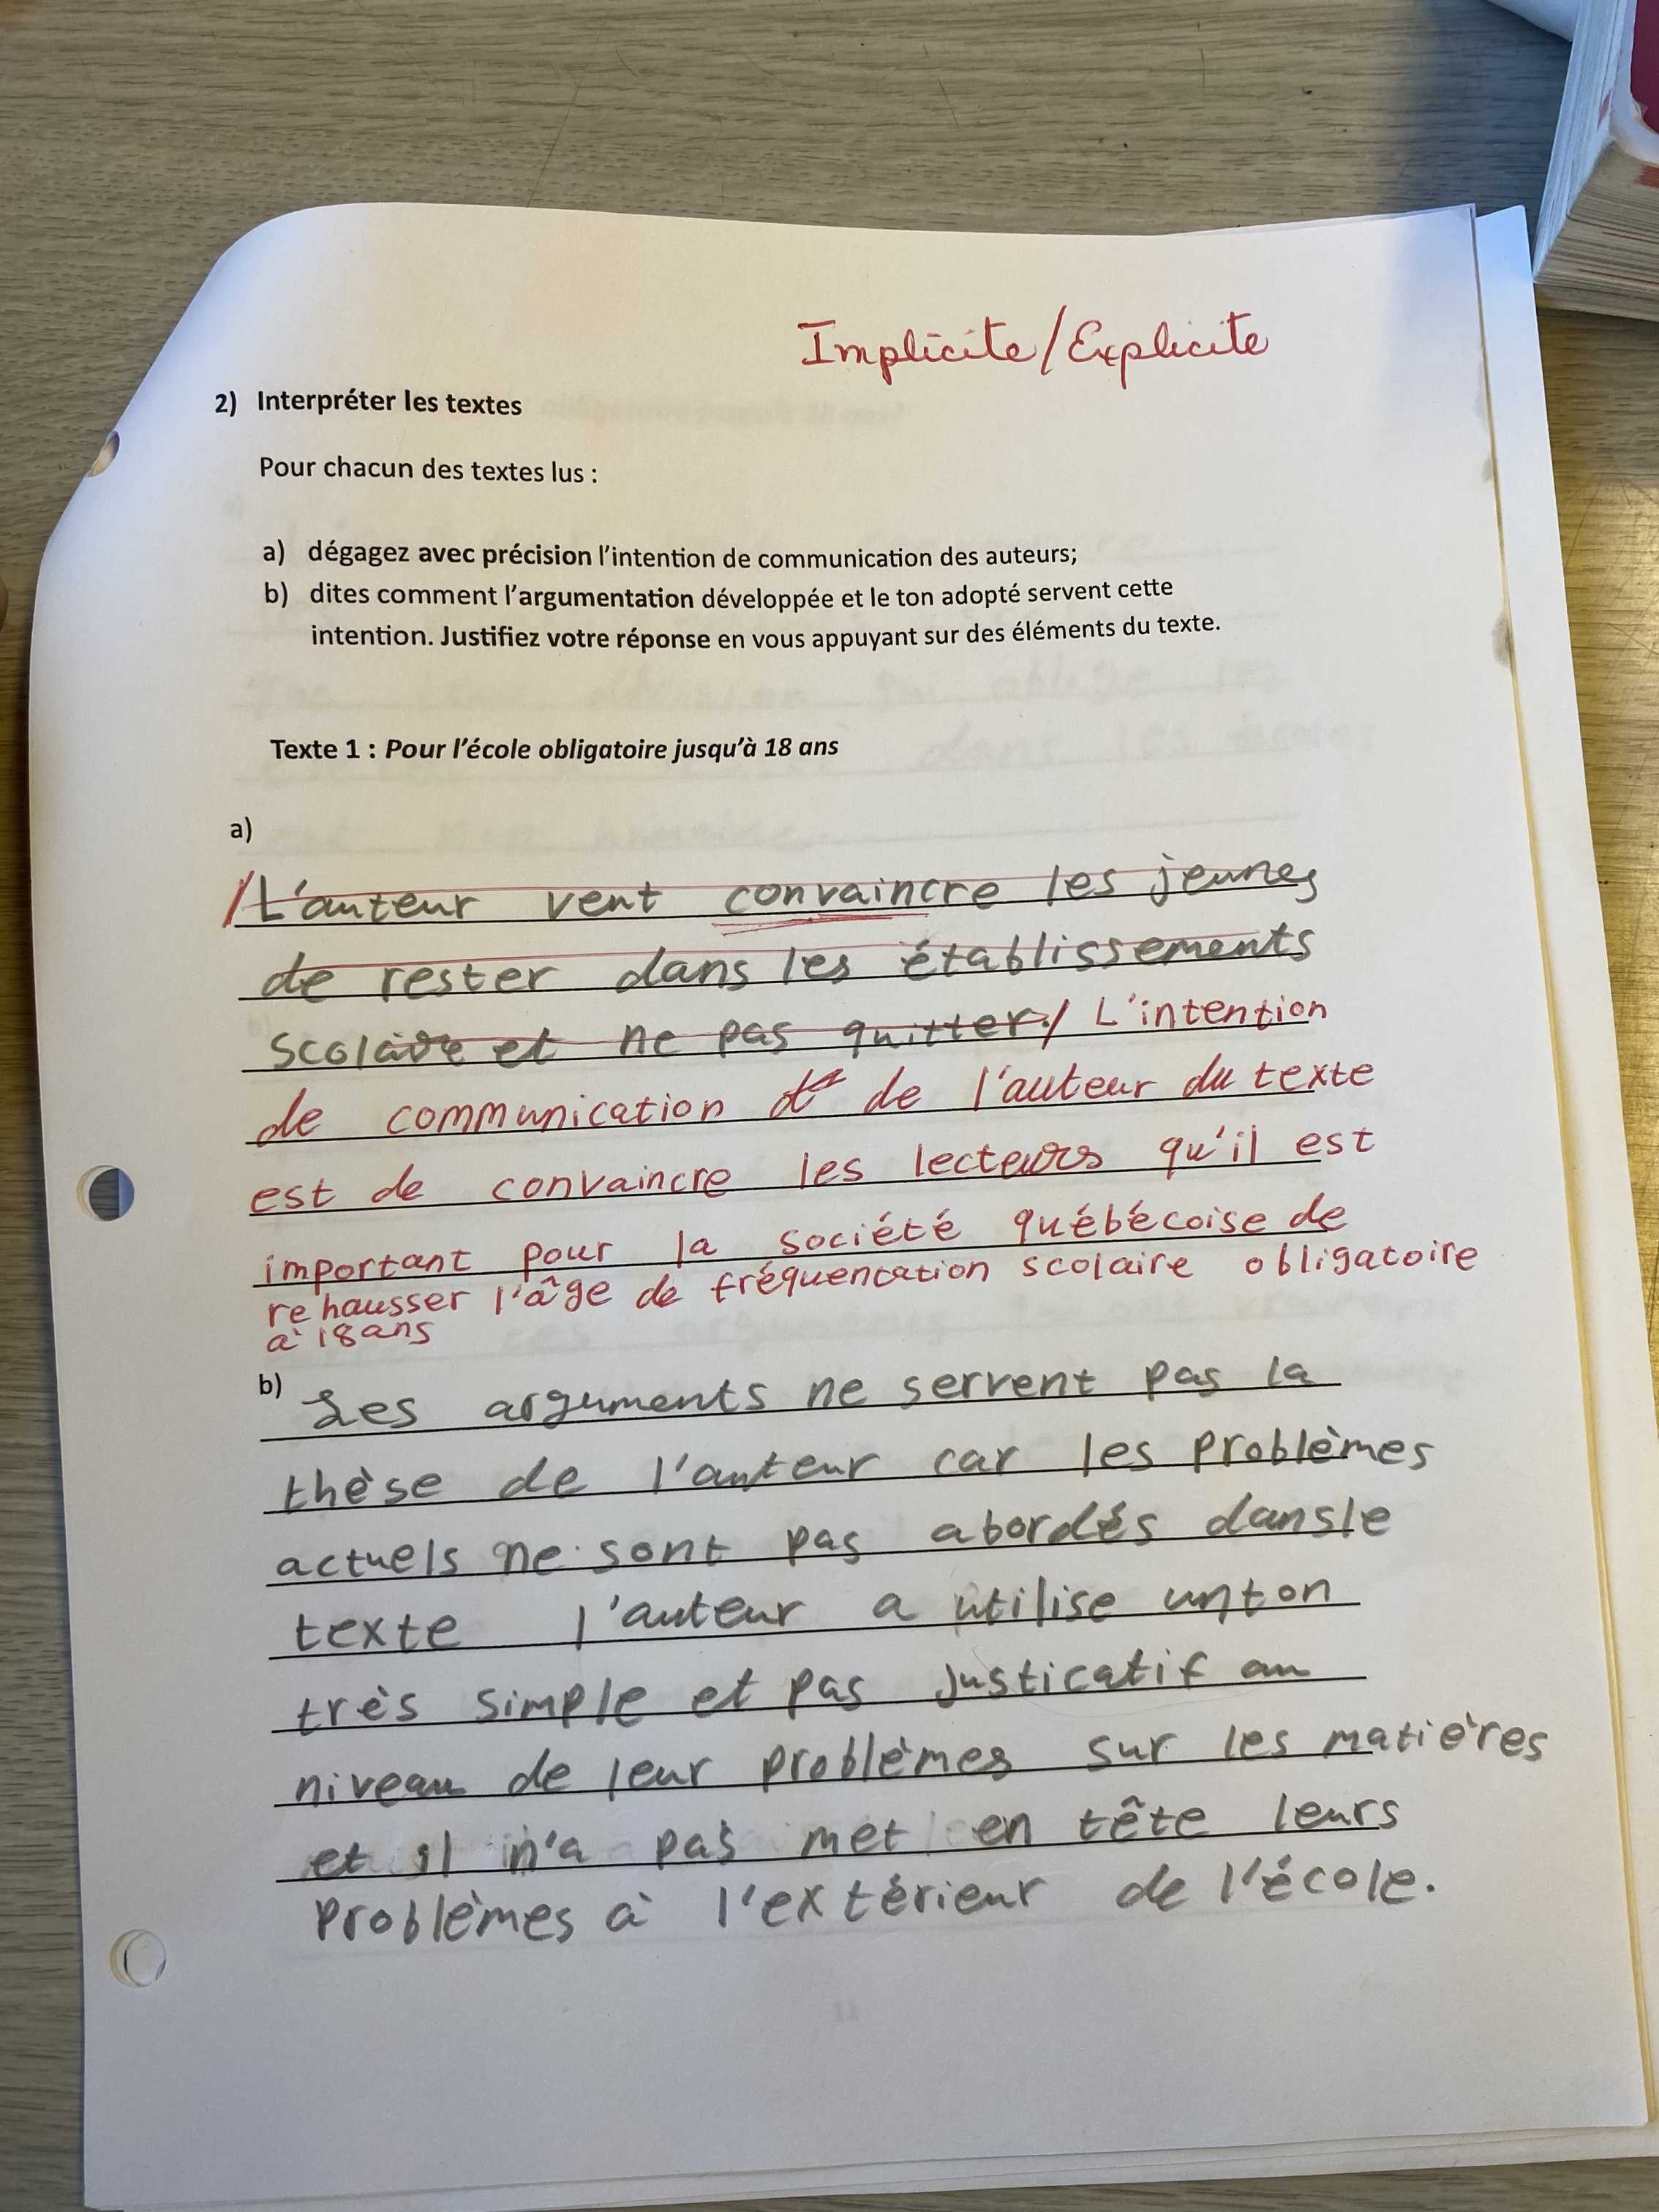 Implicite/Explicite
2) Interpréter les textes
Pour chacun des textes lus :
a) dégagez avec précision l'intention de communication des auteurs;
b) dites comment l'argumentation développée et le ton adopté servent cette
intention. Justifiez votre réponse en vous appuyant sur des éléments du texte.
Texte 1 : Pour l'école obligatoire jusqu'à 18 ans
a)
/L'auteur veut convaincre les jeunes
de rester dans les établissements
scolaire et ne pas quitter./ L'intention
de communication de l'auteur du texte
est de convaincre les lecteurs qu'il est
important pour la société québécoise de
rehausser l'âge de fréquentation scolaire obligatoire
à 18 ans
b) Les arguments ne servent pas la
thèse de l'auteur car les problèmes
actuels ne sont pas abordés dans le
texte l'auteur a utilise un ton
très simple et pas justicatif au
niveau de leur problèmes sur les matières
et il n'a pas met en tête leurs
problèmes à l'extérieur de l'école.